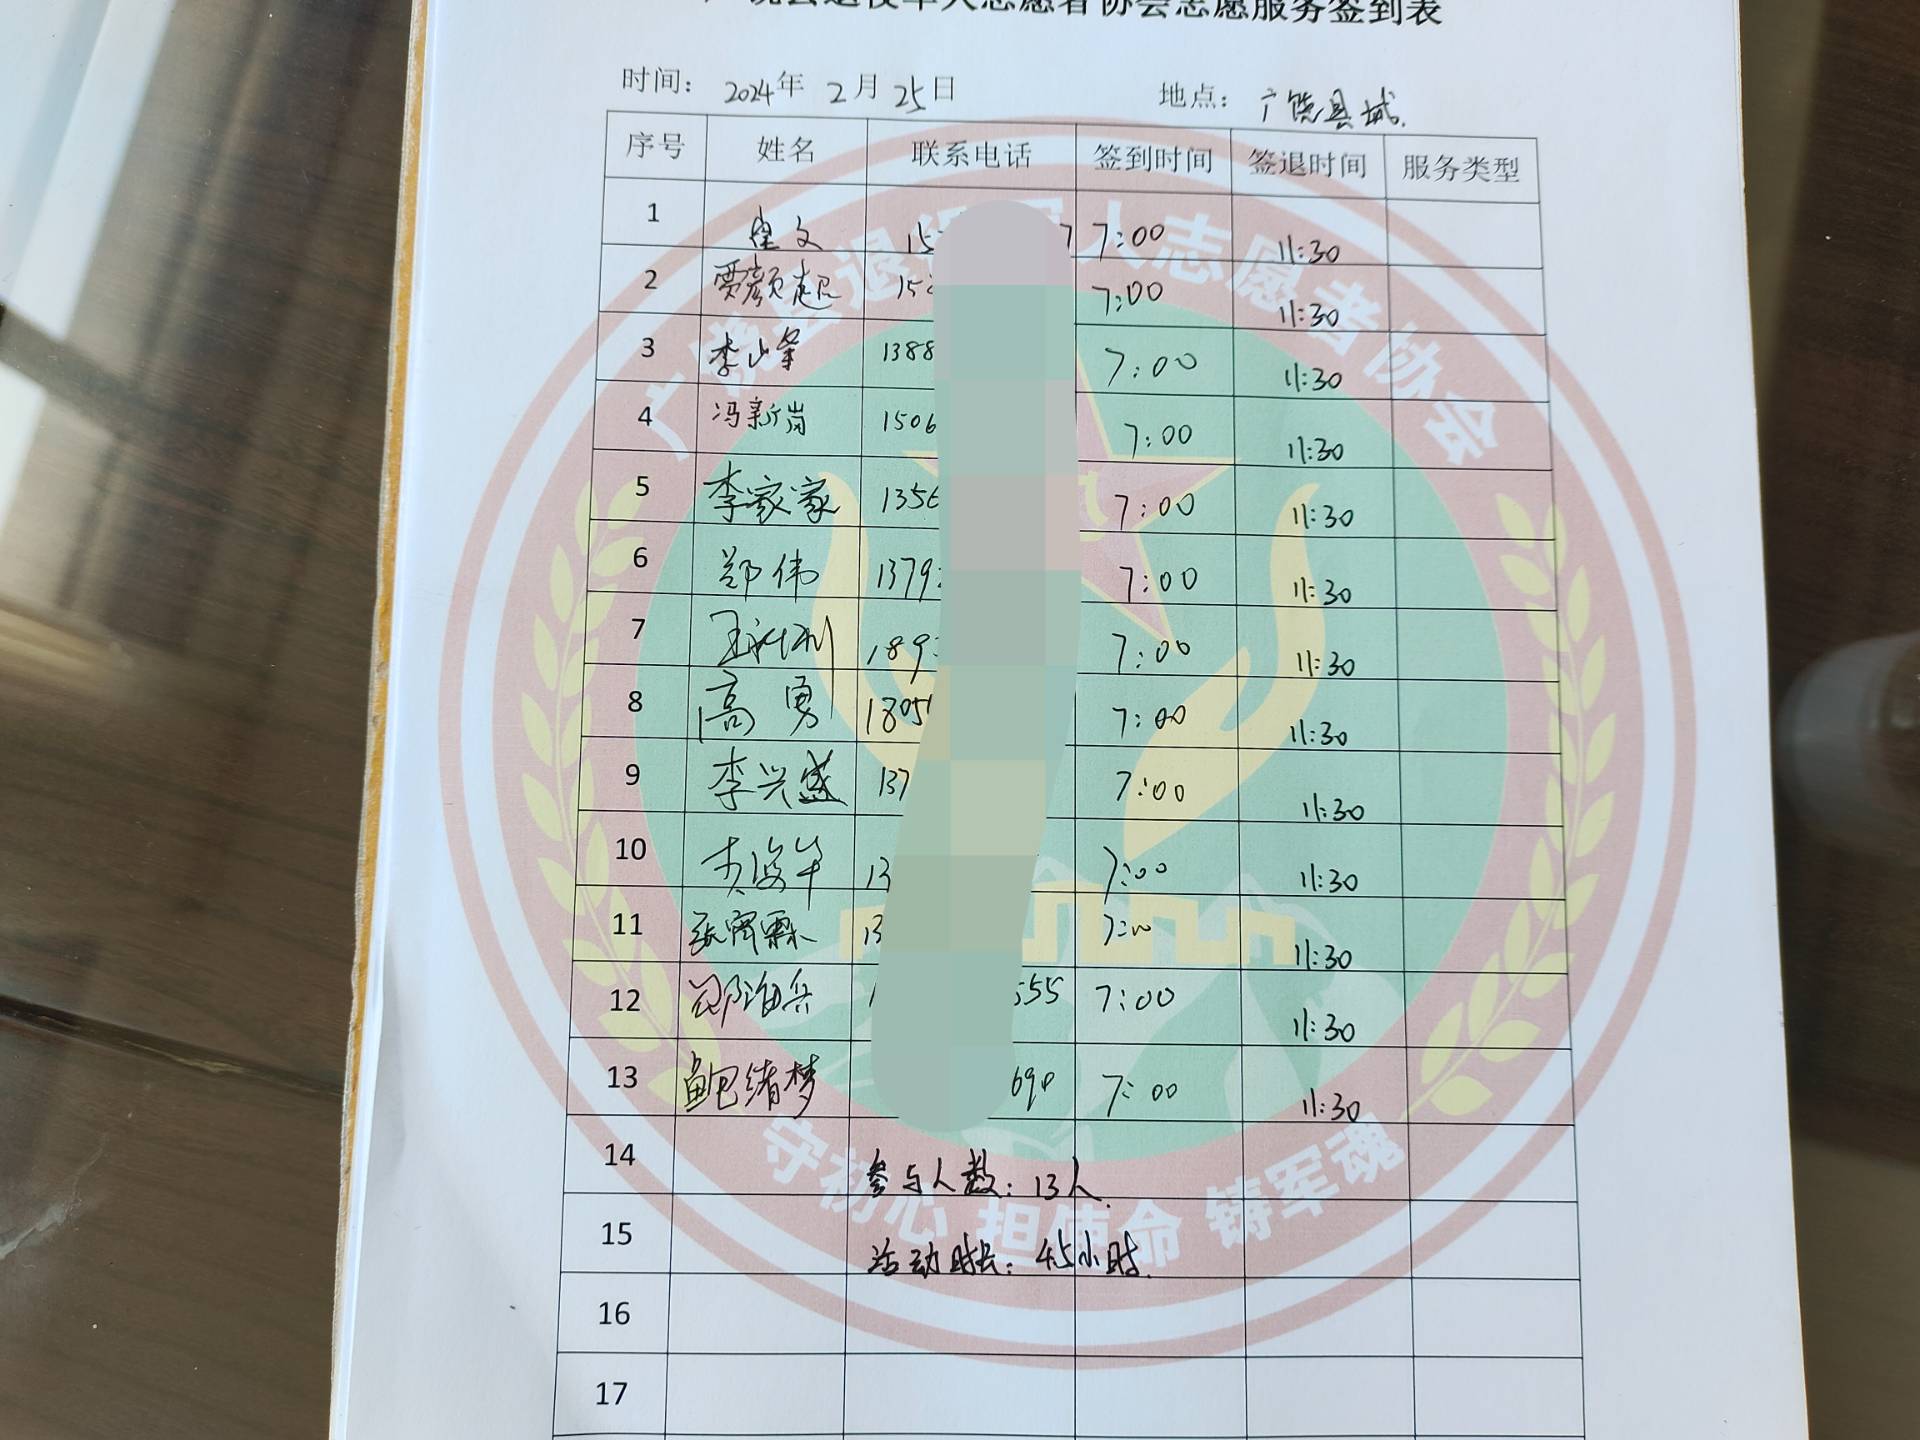 广饶县退役军人志愿者协会志愿服务签到表
时间： 2024年 2月 25日 地点： 广饶县城.
序号 姓名 联系电话 签到时间 签退时间 服务类型
1 文 15 7 7:00 11:30
2 贾颜超 15 7:00 11:30
3 李山峰 1388 7:00 11:30
4 冯新岗 1506 7:00 11:30
5 李家家 1356 7:00 11:30
6 郑伟 1379 7:00 11:30
7 王 189 7:00 11:30
8 高勇 1805 7:00 11:30
9 李兴盛 137 7:00 11:30
10 13 7:00 11:30
11 张霖 13 7:00 11:30
12 兵 555 7:00 11:30
13 鲍绪梦 690 7:00 11:30
14 参与人数：13人.
15 活动时长：4.5小时.
16
17
广饶县退役军人志愿者协会
守初心 担使命 铸军魂